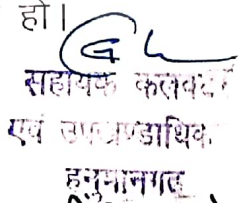 हो।
सहायक कलक्टर
एवं उपखण्डाधिक
हनुमानगढ़